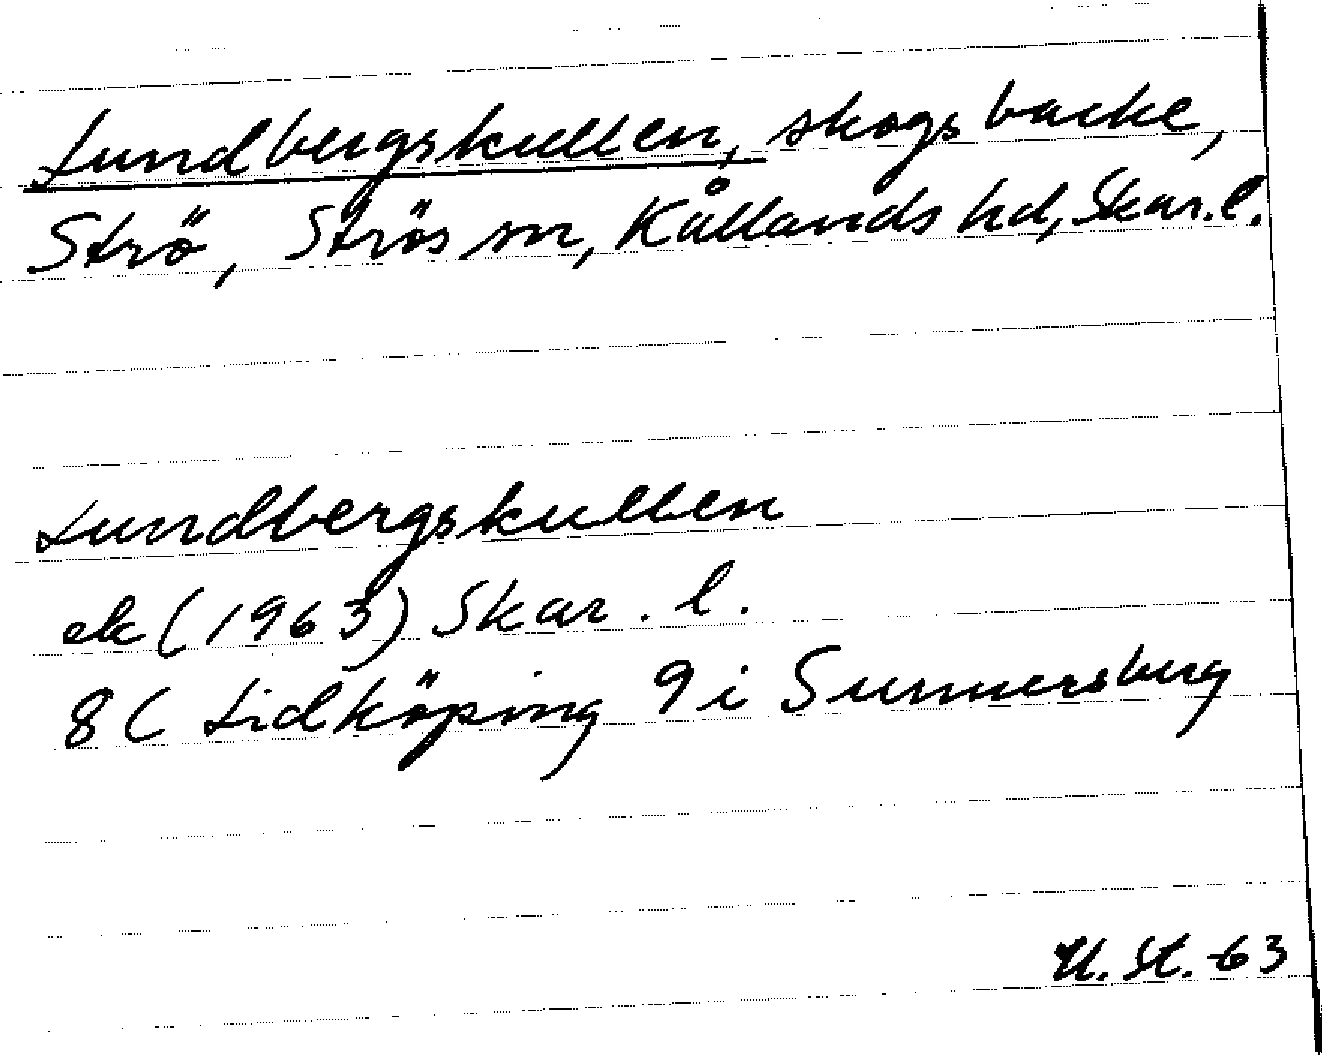 Lundbergskullen, skogsbacke,
Strö, Strös sn, Kållands hd, Skar. l.
Lundbergskullen
ek (1963) Skar. l.
8C Lidköping 9i Sunnersberg
U. St. -63